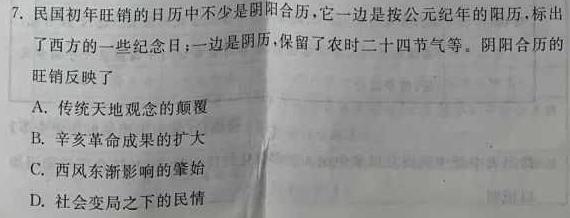 7. 民国初年旺销的日历中不少是阴阳合历,它一边是按公元纪年的阳历,标出
了西方的一些纪念日;一边是阴历,保留了农时二十四节气等。阴阳合历的
旺销反映了
A. 传统天地观念的颠覆
B. 辛亥革命成果的扩大
C. 西风东渐影响的肇始
D. 社会变局之下的民情